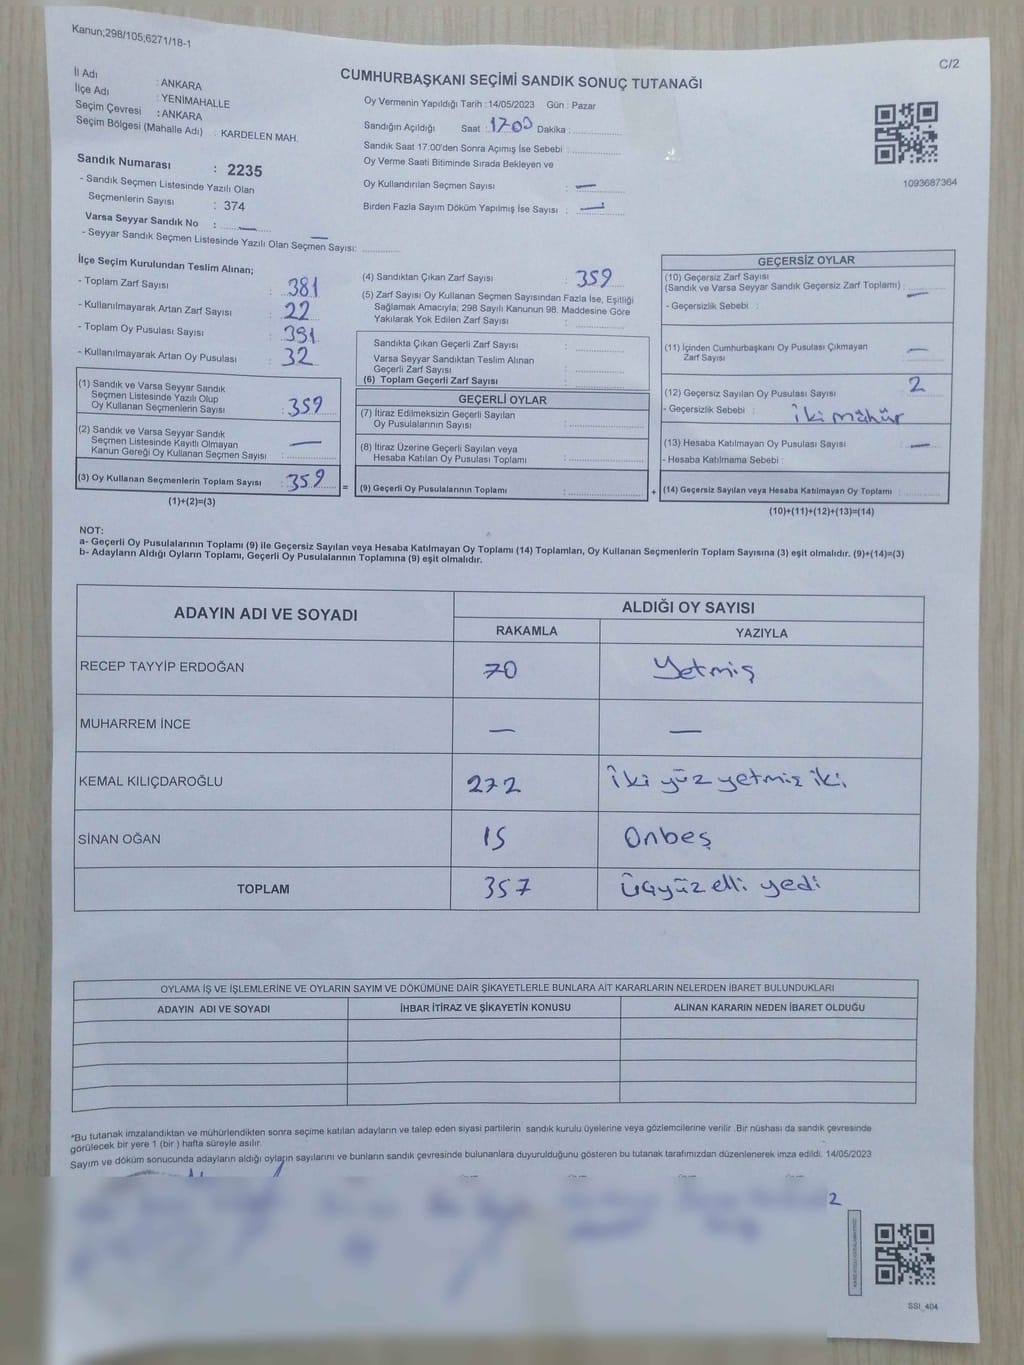 Kanun;298/105;6271/18-1
C/2
CUMHURBAŞKANI SEÇİMİ SANDIK SONUÇ TUTANAĞI
İl Adı : ANKARA
İlçe Adı : YENİMAHALLE
Seçim Çevresi : ANKARA
Seçim Bölgesi (Mahalle Adı) : KARDELEN MAH.
Sandık Numarası : 2235
- Sandık Seçmen Listesinde Yazılı Olan
Seçmenlerin Sayısı : 374
Varsa Seyyar Sandık No : —
- Seyyar Sandık Seçmen Listesinde Yazılı Olan Seçmen Sayısı: —
Oy Vermenin Yapıldığı Tarih :14/05/2023 Gün : Pazar
Sandığın Açıldığı Saat : 1700 Dakika :
Sandık Saat 17:00'den Sonra Açımış İse Sebebi :
Oy Verme Saati Bitiminde Sırada Bekleyen ve
Oy Kullandırılan Seçmen Sayısı : —
Birden Fazla Sayım Döküm Yapılmış İse Sayısı : —
1093687364
İlçe Seçim Kurulundan Teslim Alınan;
- Toplam Zarf Sayısı : 381
- Kullanılmayarak Artan Zarf Sayısı : 22
- Toplam Oy Pusulası Sayısı : 391
- Kullanılmayarak Artan Oy Pusulası : 32
(1) Sandık ve Varsa Seyyar Sandık
Seçmen Listesinde Yazılı Olup
Oy Kullanan Seçmenlerin Sayısı : 359
(2) Sandık ve Varsa Seyyar Sandık
Seçmen Listesinde Kayıtlı Olmayan
Kanun Gereği Oy Kullanan Seçmen Sayısı : —
(3) Oy Kullanan Seçmenlerin Toplam Sayısı : 359
(1)+(2)=(3)
(4) Sandıktan Çıkan Zarf Sayısı : 359
(5) Zarf Sayısı Oy Kullanan Seçmen Sayısından Fazla İse, Eşitliği
Sağlamak Amacıyla; 298 Sayılı Kanunun 98. Maddesine Göre
Yakılarak Yok Edilen Zarf Sayısı :
Sandıkta Çıkan Geçerli Zarf Sayısı :
Varsa Seyyar Sandıktan Teslim Alınan
Geçerli Zarf Sayısı :
(6) Toplam Geçerli Zarf Sayısı :
GEÇERLİ OYLAR
(7) İtiraz Edilmeksizin Geçerli Sayılan
Oy Pusulalarının Sayısı :
(8) İtiraz Üzerine Geçerli Sayılan veya
Hesaba Katılan Oy Pusulası Toplamı :
= (9) Geçerli Oy Pusulalarının Toplamı :
GEÇERSİZ OYLAR
(10) Geçersiz Zarf Sayısı
(Sandık ve Varsa Seyyar Sandık Geçersiz Zarf Toplamı) : —
- Geçersizlik Sebebi :
(11) İçinden Cumhurbaşkanı Oy Pusulası Çıkmayan
Zarf Sayısı : —
(12) Geçersiz Sayılan Oy Pusulası Sayısı : 2
- Geçersizlik Sebebi : iki mühür
(13) Hesaba Katılmayan Oy Pusulası Sayısı : —
- Hesaba Katılmama Sebebi :
+ (14) Geçersiz Sayılan veya Hesaba Katılmayan Oy Toplamı :
(10)+(11)+(12)+(13)=(14)
NOT:
a- Geçerli Oy Pusulalarının Toplamı (9) ile Geçersiz Sayılan veya Hesaba Katılmayan Oy Toplamı (14) Toplamları, Oy Kullanan Seçmenlerin Toplam Sayısına (3) eşit olmalıdır. (9)+(14)=(3)
b- Adayların Aldığı Oyların Toplamı, Geçerli Oy Pusulalarının Toplamına (9) eşit olmalıdır.
ADAYIN ADI VE SOYADI ALDIĞI OY SAYISI
RAKAMLA YAZIYLA
RECEP TAYYİP ERDOĞAN 70 Yetmiş
MUHARREM İNCE — —
KEMAL KILIÇDAROĞLU 272 İki yüz yetmiş iki
SİNAN OĞAN 15 Onbeş
TOPLAM 357 Üçyüz elli yedi
OYLAMA İŞ VE İŞLEMLERİNE VE OYLARIN SAYIM VE DÖKÜMÜNE DAİR ŞİKAYETLERLE BUNLARA AİT KARARLARIN NELERDEN İBARET BULUNDUKLARI
ADAYIN ADI VE SOYADI İHBAR İTİRAZ VE ŞİKAYETİN KONUSU ALINAN KARARIN NEDEN İBARET OLDUĞU
*Bu tutanak imzalandıktan ve mühürlendikten sonra seçime katılan adayların ve talep eden siyasi partilerin sandık kurulu üyelerine veya gözlemcilerine verilir .Bir nüshası da sandık çevresinde
görülecek bir yere 1 (bir ) hafta süreyle asılır.
Sayım ve döküm sonucunda adayların aldığı oyların sayılarını ve bunların sandık çevresinde bulunanlara duyurulduğunu gösteren bu tutanak tarafımızdan düzenlenerek imza edildi. 14/05/2023
2
SSI_404